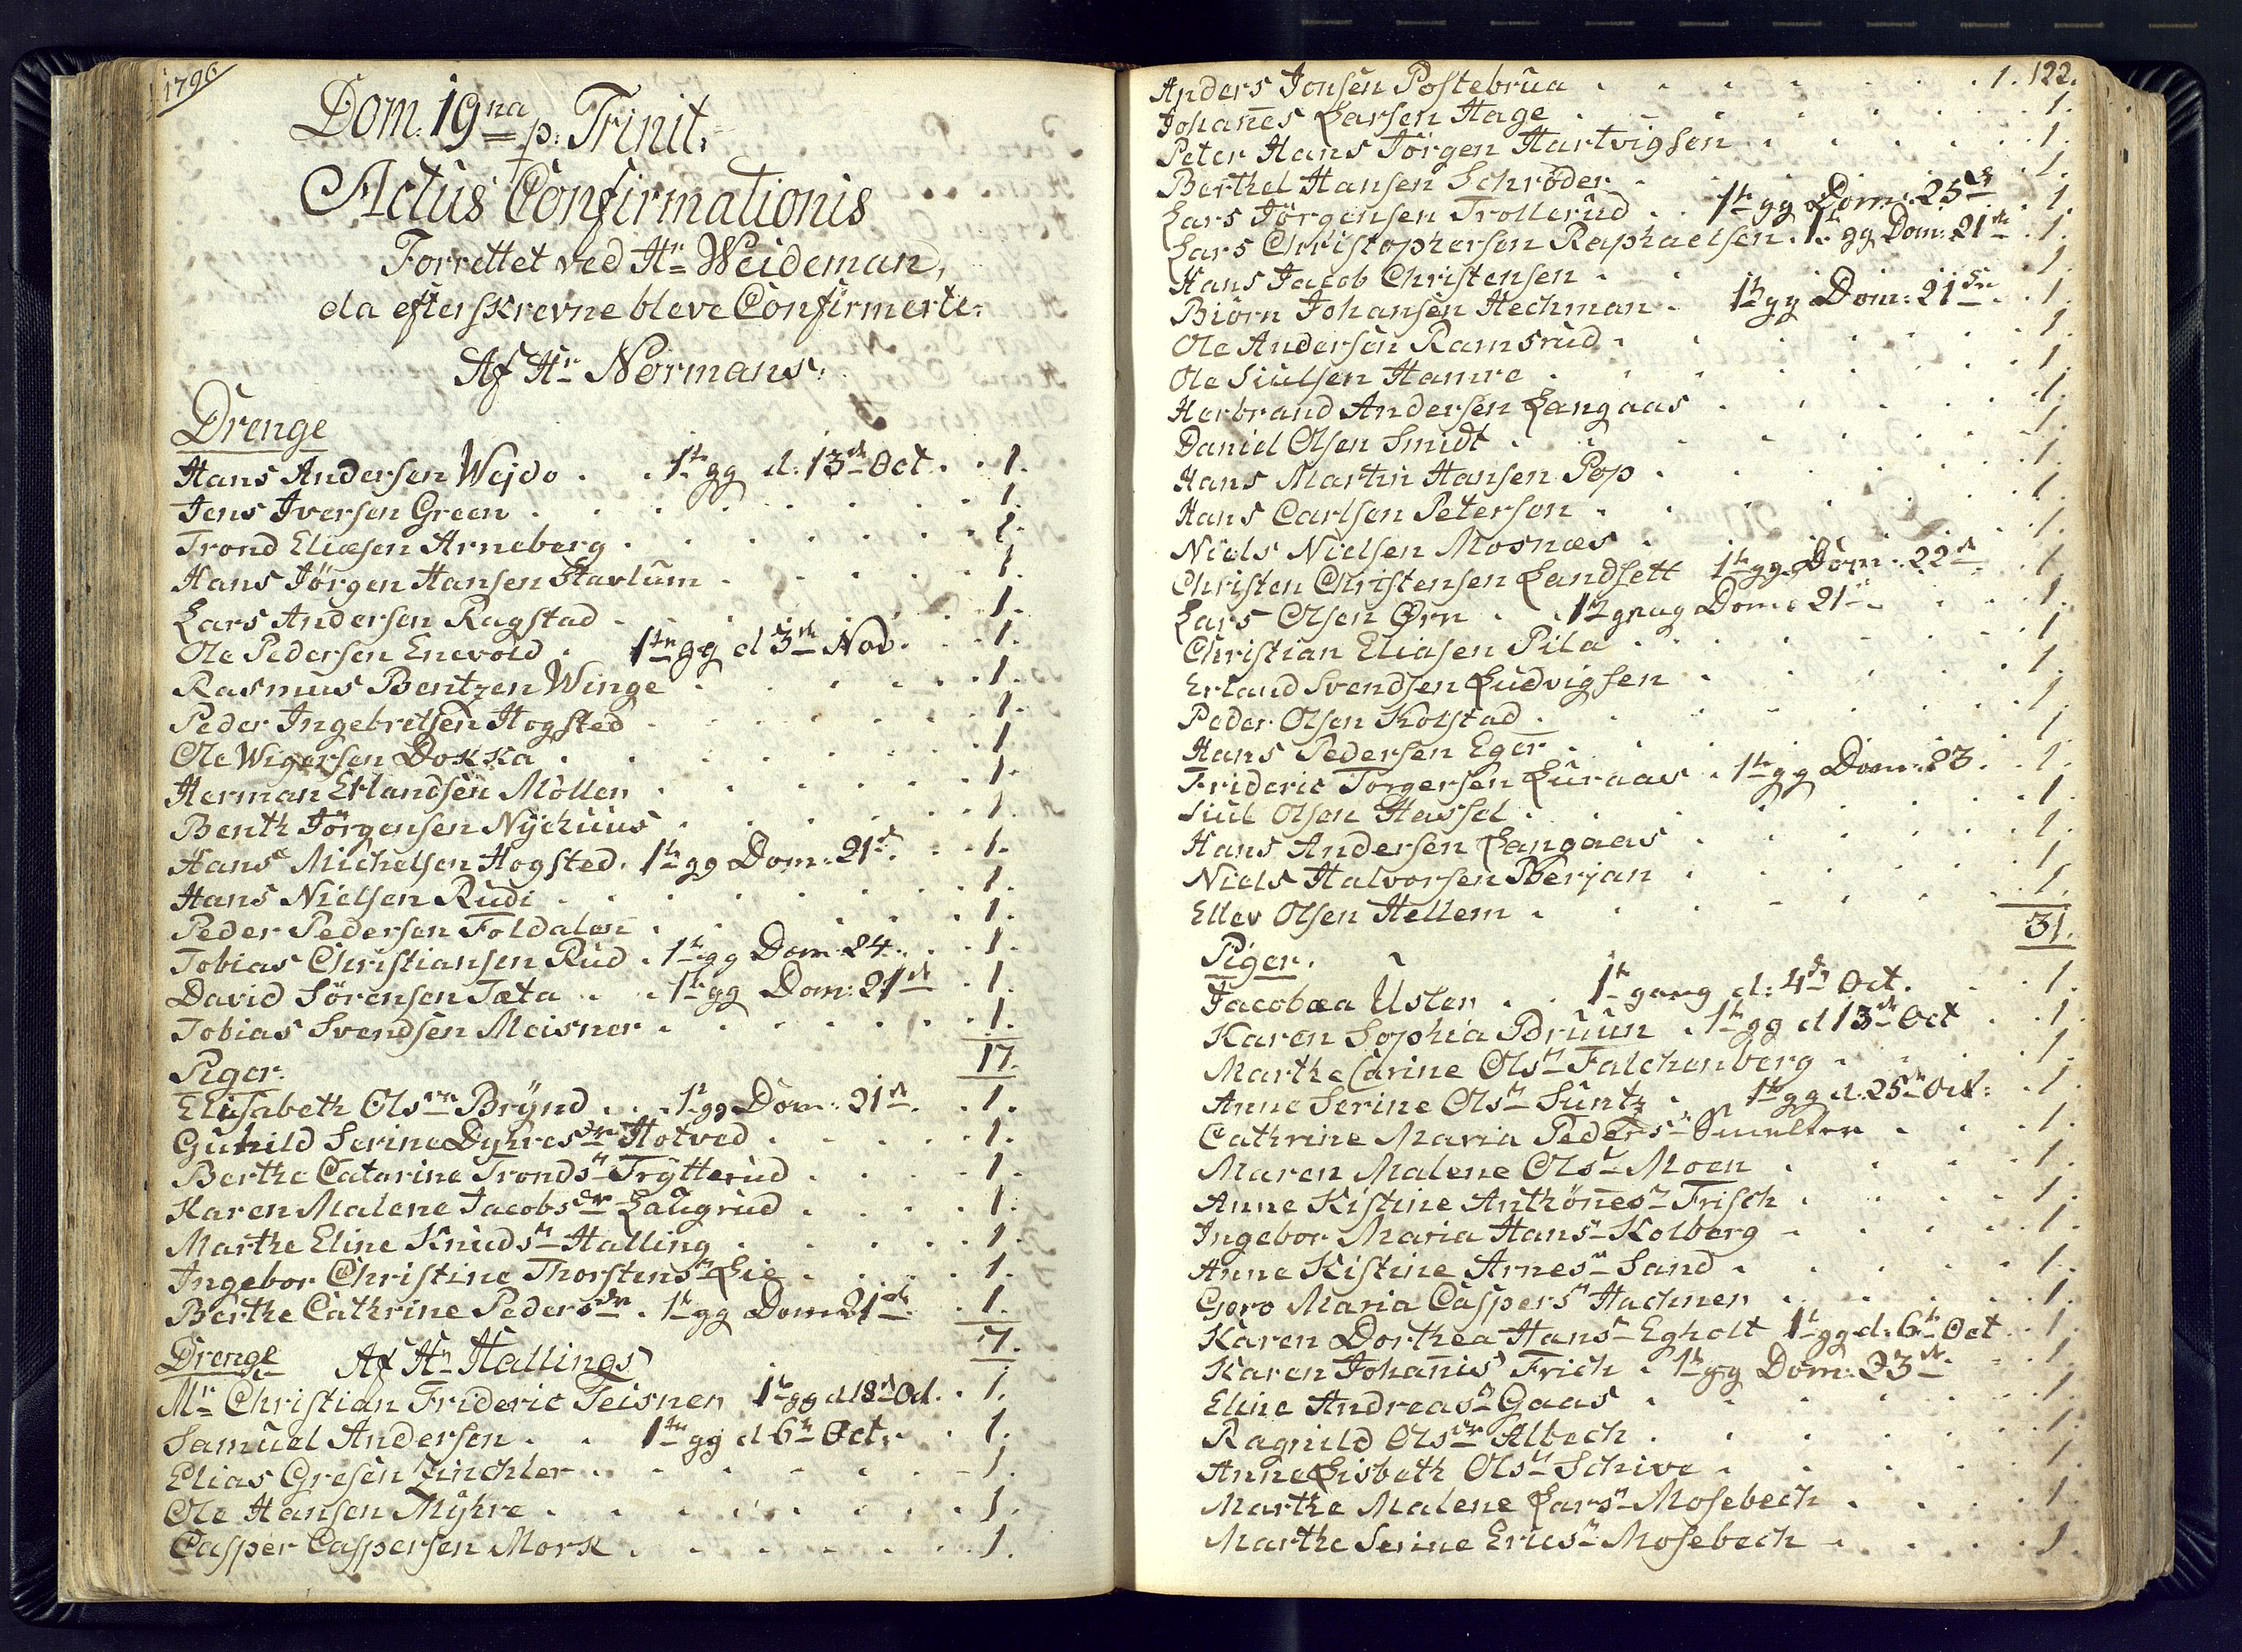 1796
Dom: 19na p: Trinit:
Actus Confirmationis
Forrettet ved Hr Weideman,
da efterskrevne bleve Confirmerte.
Af Hr Normans:
Drenge
Hans Andersen Wejdo . . 1te gg d: 13de Oct . . 1.
Jens Iversen Green . . . 1.
Trond Eliæsen Arneberg . . . 1.
Hans Jörgen Hansen Stavlum . . . 1.
Lars Andersen Ragstad . . . 1.
Ole Pedersen Enevold . 1te gg d 3de Nov . . 1.
Rasmus Bentzen Winge . . . 1.
Peder Ingebretsen Hogsted . . . 1.
Ole Wigersen Dokka . . . 1.
Herman Erlandsen Möllen . . . 1.
Benth Jörgensen Nÿehuus . . . 1.
Hans Michelsen Hogsted . 1te gg Dom: 21de . . 1.
Hans Nielsen Rudi . . . 1.
Peder Pedersen Foldalen . . . 1.
Tobias Christiansen Rud . 1te gg Dom 24 . . 1.
David Sörensen Tæta . . 1te gg Dom: 21de . 1.
Tobias Svendsen Meisner . . . 1.
17.
Piger.
Elisabeth Olsdr Brÿnd . . . 1te gg Dom: 21de . . 1.
Gunild Serine Dyhresdr Hotved . . . 1.
Berthe Catarine Trondsdr Trÿtterud . . . 1.
Karen Malene Jacobsdr Laugrud . . . 1.
Marthe Eline Knudsdr Halling . . . 1.
Ingebor Christine Thorstensdr Lie . . . 1.
Berthe Cathrine Pedersdr . 1te gg Dom 21de . 1.
7.
Drenge Af Hr Hallings
Mr Christian Frideric Teisner 1te gg d 18de Oct. . 1.
Samuel Andersen . . 1te gg d 6te Oct. . 1.
Elias Gresen Zinchler . . . 1.
Ole Hansen Mÿhre . . . 1.
Casper Caspersen Mork . . . 1.
122.
Anders Jonsen Postebrua . . . 1.
Johanes Larsen Hage . . . 1.
Peter Hans Jörgen Hartvigsen . . . 1.
Berthel Hansen Schröder . . . 1.
Lars Jörgensen Trollerud . . 1te gg Dom: 25de . 1.
Lars Christophersen Raphaelsen . 1te gg Dom: 21de . 1.
Hans Jacob Christensen . . . 1.
Biörn Johansen Hechman . 1te gg Dom: 21de . . 1.
Ole Andersen Ramsrud . . . 1.
Ole Siulsen Hamre . . . 1.
Herbrand Andersen Langaas . . . 1.
Daniel Olsen Smidt . . . 1.
Hans Martin Hansen Pop . . . 1.
Hans Carlsen Peterson . . . 1.
Niels Nielsen Mosnæs . . . 1.
Christen Christensen Landsett 1te gg Dom: 22de . 1.
Lars Olsen Ørn . . 1te gang Dom: 21de . . 1.
Christian Eliasen Pila . . . 1.
Erland Svendsen Ludvigsen . . . 1.
Peder Olsen Kolstad . . . 1.
Hans Pedersen Eger . . . 1.
Frideric Torgersen Luraas . 1te gg Dom: 23 . . 1.
Siul Olsen Hassel . . . 1.
Hans Andersen Langaas . . . 1.
Niels Halvorsen Berjan . . . 1.
Ellev Olsen Hellem . . . 1.
31.
Piger.
Jacobæa Usler . . 1te gang d: 4de Oct. . . 1.
Karen Sophia Bruun . 1te gg d 13de Oct . . 1.
Marthe Carine Olsdr Falchenberg . . . 1.
Anne Serine Olsdr Suntz . 1te gg d: 25de Oct: . 1.
Cathrine Maria Pedersdr Smelter . . . 1.
Maren Malene Olsdr Moen . . . 1.
Anne Kistine Anthönesdr Frisch . . . 1.
Ingebor Maria Hansdr Kolberg . . . 1.
Anne Kistine Arnesdr Sand . . . 1.
Goro Maria Caspersdr Hachner . . . 1.
Karen Dorthea Hansdr Egholt 1te gg d: 6te Oct . 1.
Karen Johanis Frich . 1te gg Dom: 23de . . 1.
Eline Andreasdr Gaas . . . 1.
Ragnild Olsdr Albech . . . 1.
Anne Lisbeth Olsdr Schive . . . 1.
Marthe Malene Larsdr Mosebech . . . 1.
Marthe Serine Ericsdr Mosebech . . . 1.